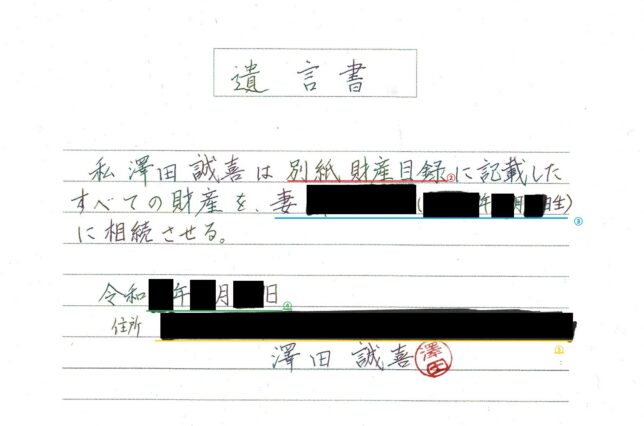 遺言書
私澤田誠喜は別紙財産目録②に記載した
すべての財産を、妻(年月日生)③
に相続させる。
令和年月日④
住所
澤田誠喜 澤田